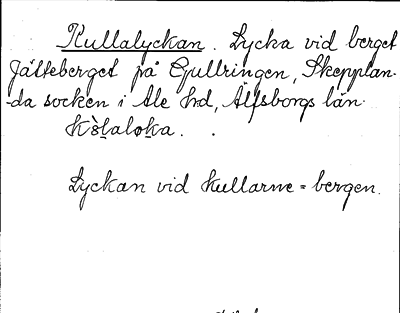 Kullalyckan. Lycka vid berget
Jätteberget på Gullringen, Skepplan-
-da socken i Ale hrd, Älfsborgs län.
Lyckan vid kullarne = bergen.